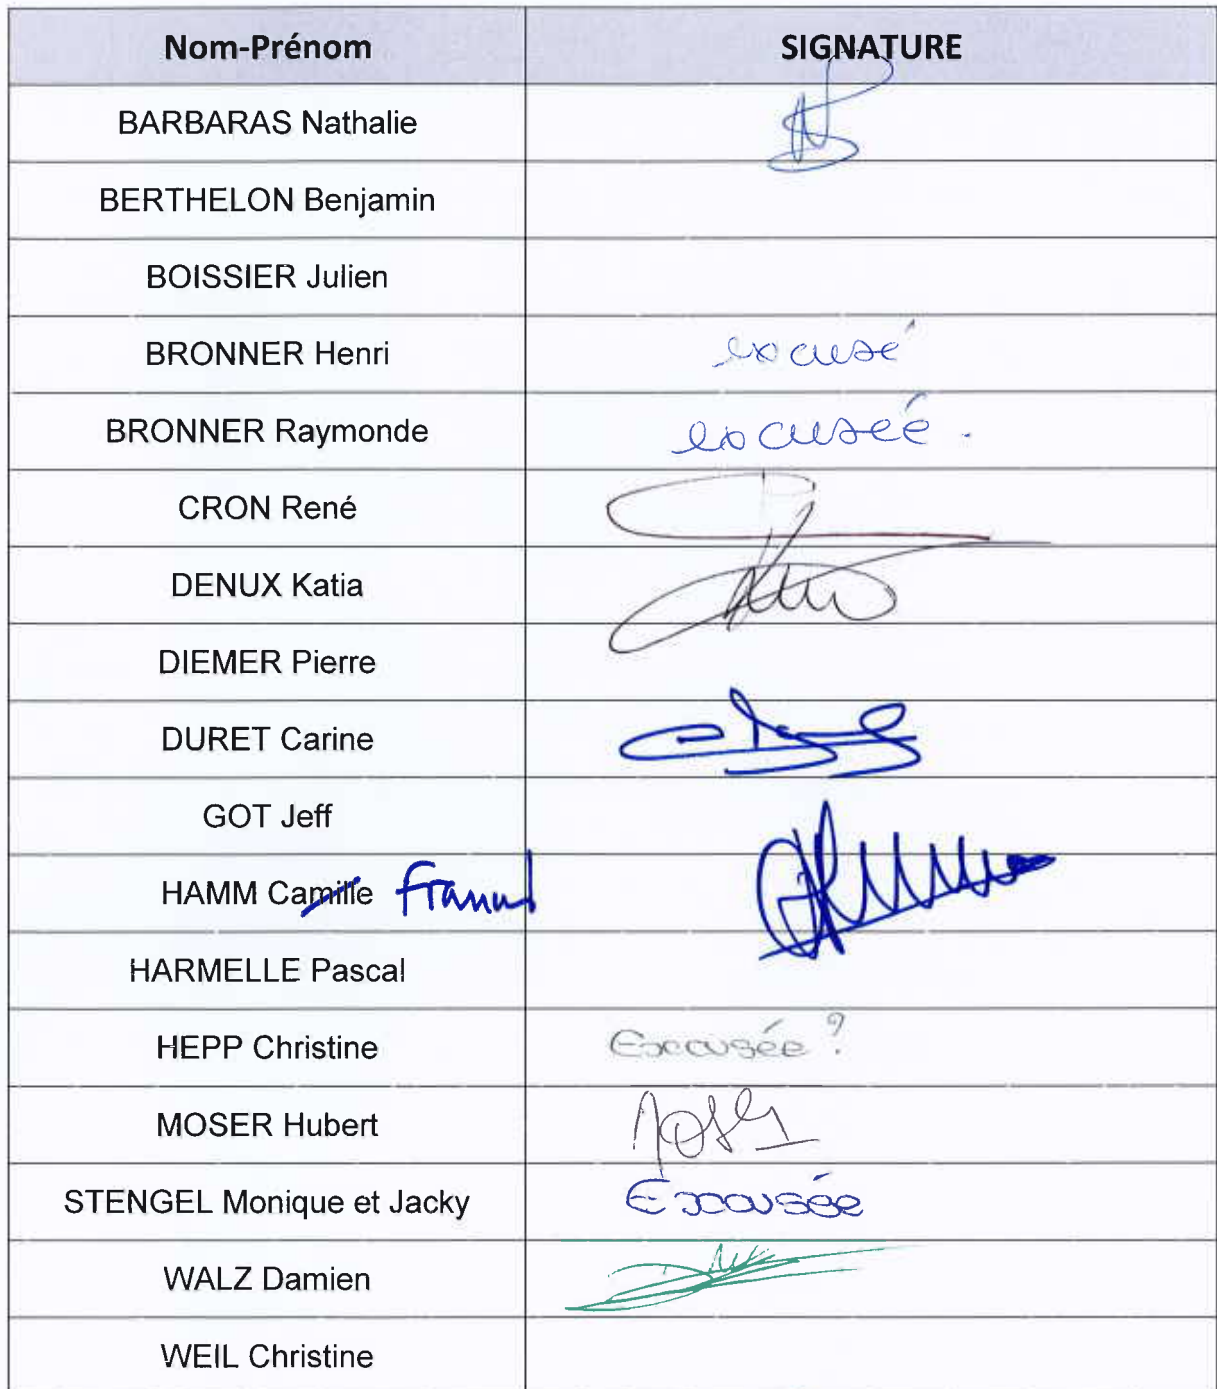 Nom-Prénom SIGNATURE
BARBARAS Nathalie
BERTHELON Benjamin
BOISSIER Julien
BRONNER Henri excusé
BRONNER Raymonde excusée.
CRON René
DENUX Katia
DIEMER Pierre
DURET Carine
GOT Jeff
HAMM Camille
HARMELLE Pascal
HEPP Christine Excusée?
MOSER Hubert
STENGEL Monique et Jacky Excusée
WALZ Damien
WEIL Christine